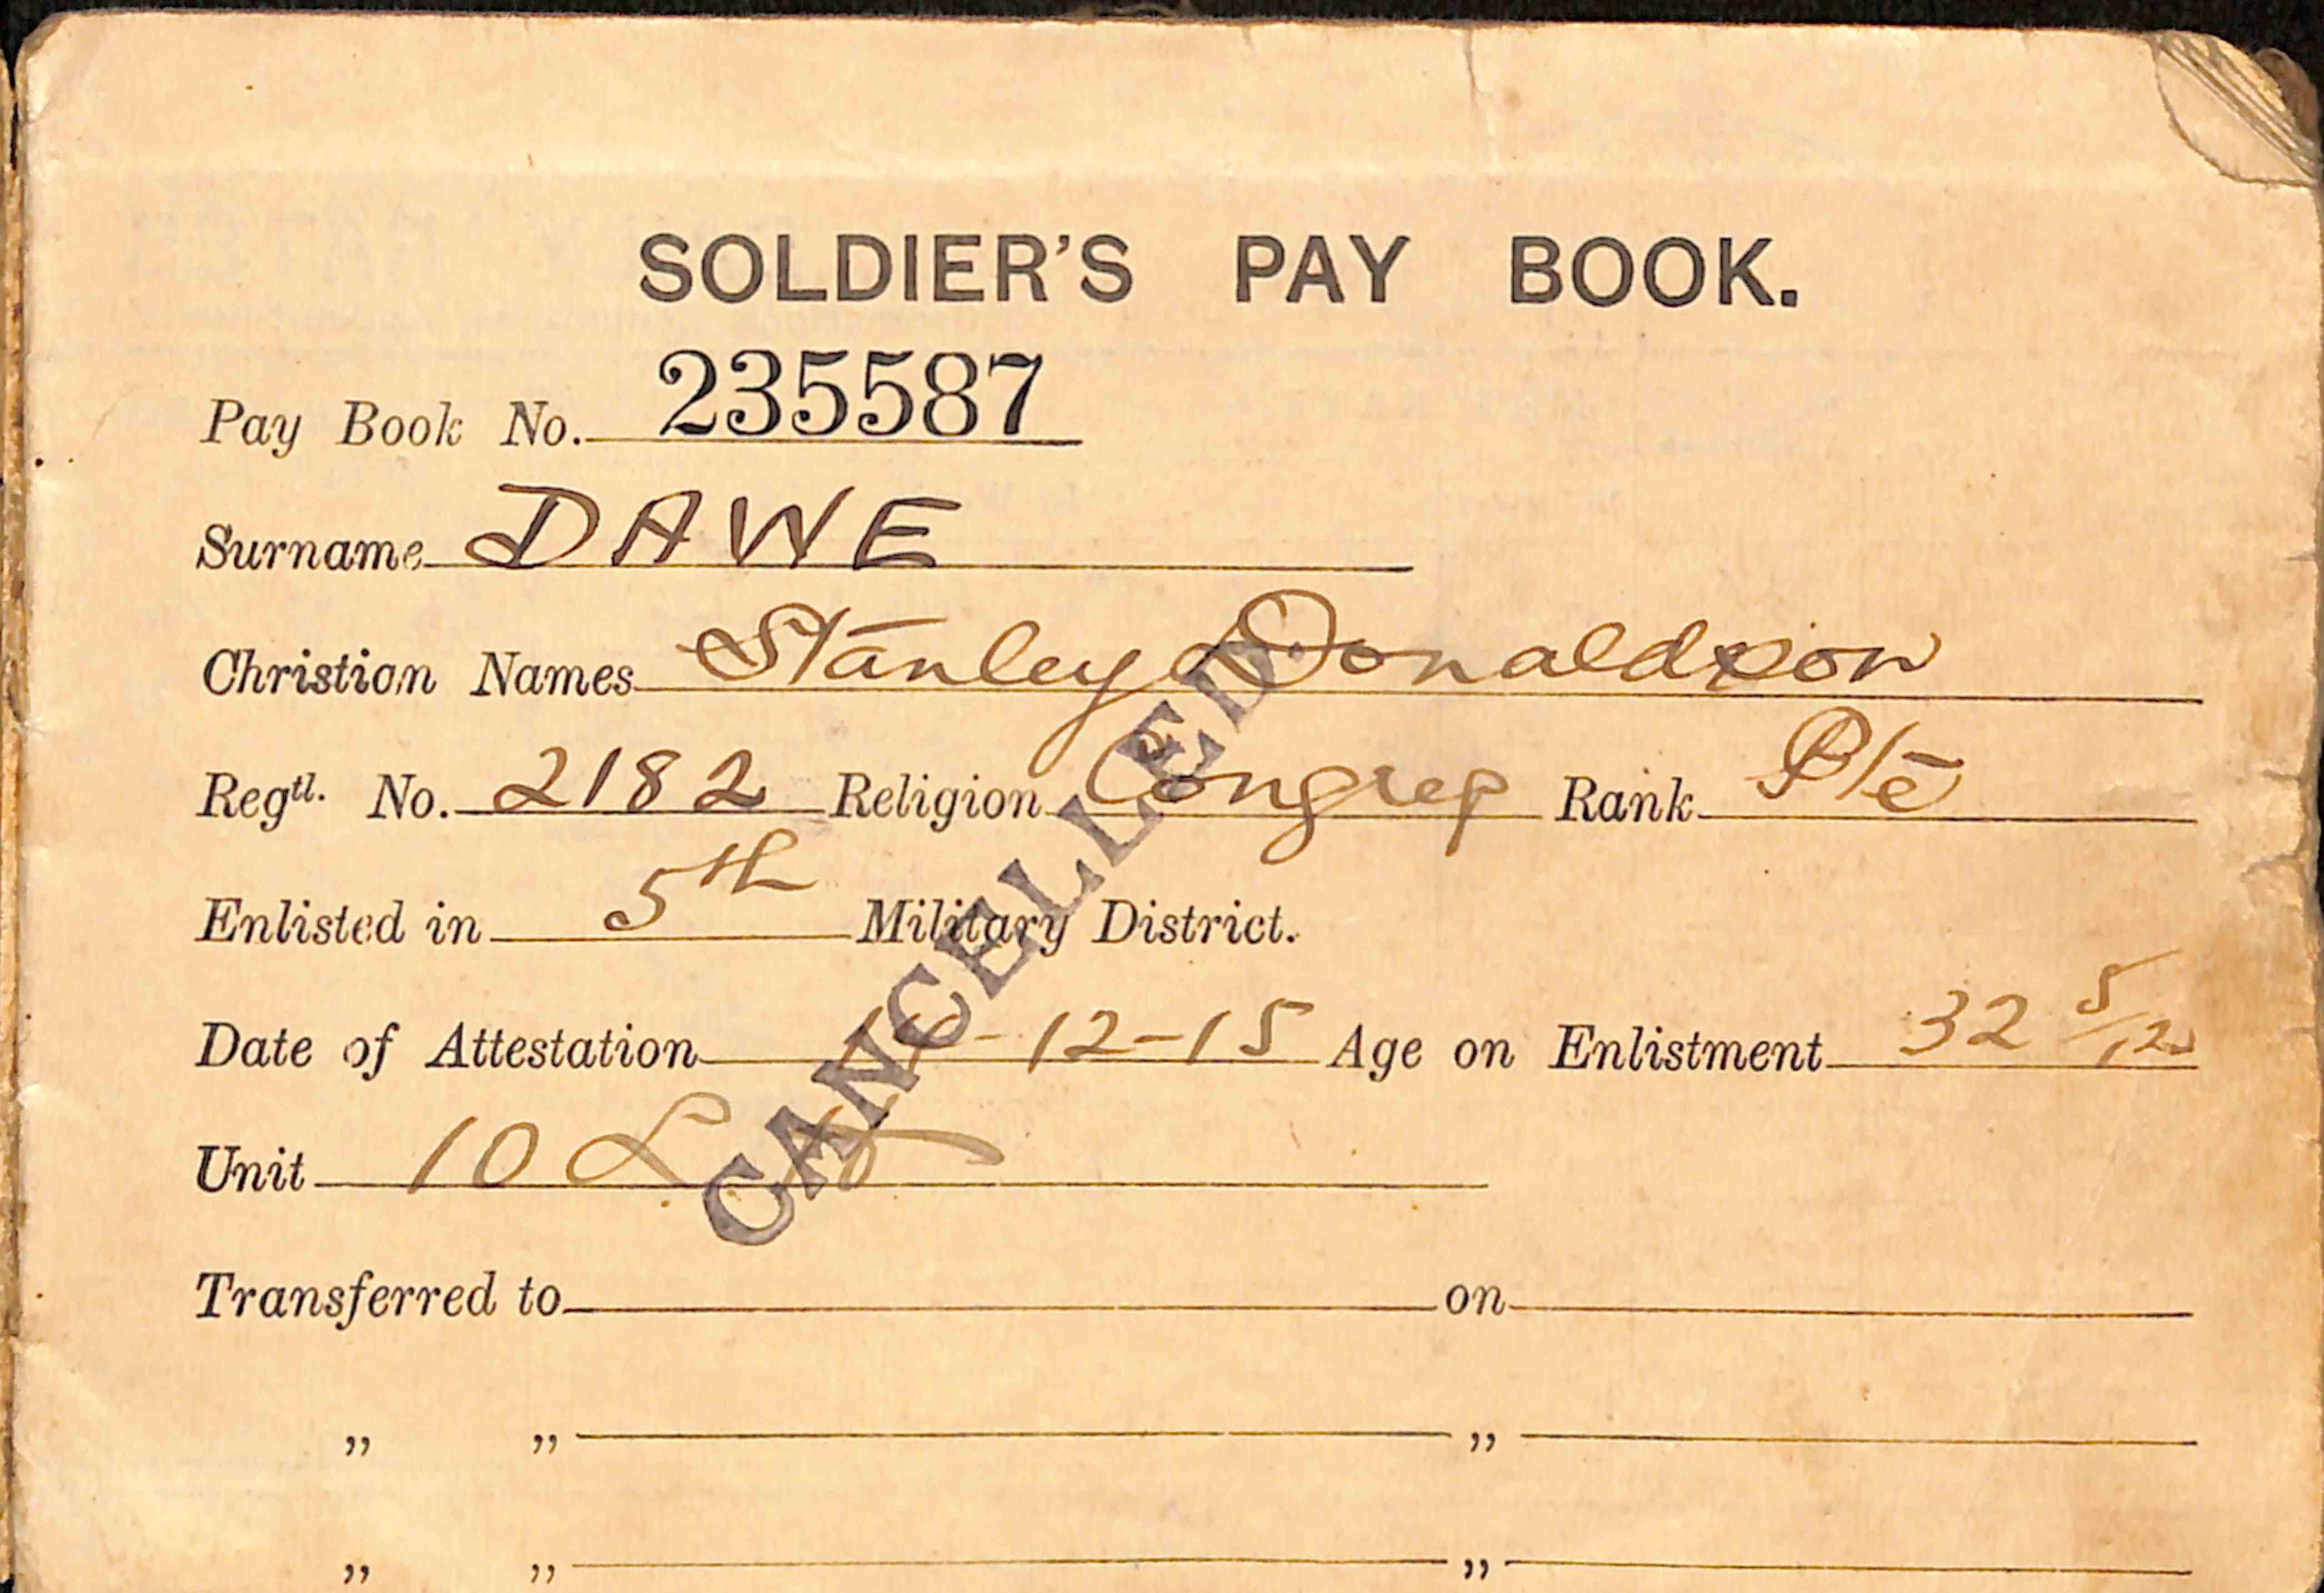 SOLDIER'S PAY BOOK.
Pay Book No. 235587
Surname DAWE
Christian Names Stanley Donaldson
Regtl. No. 2182 Religion Congreg Rank Pte
Enlisted in 5th Military District.
Date of Attestation -12-15 Age on Enlistment 32 5/12
Unit 10 L
Transferred to on
„ „ „
„ „ „
CANCELLED.